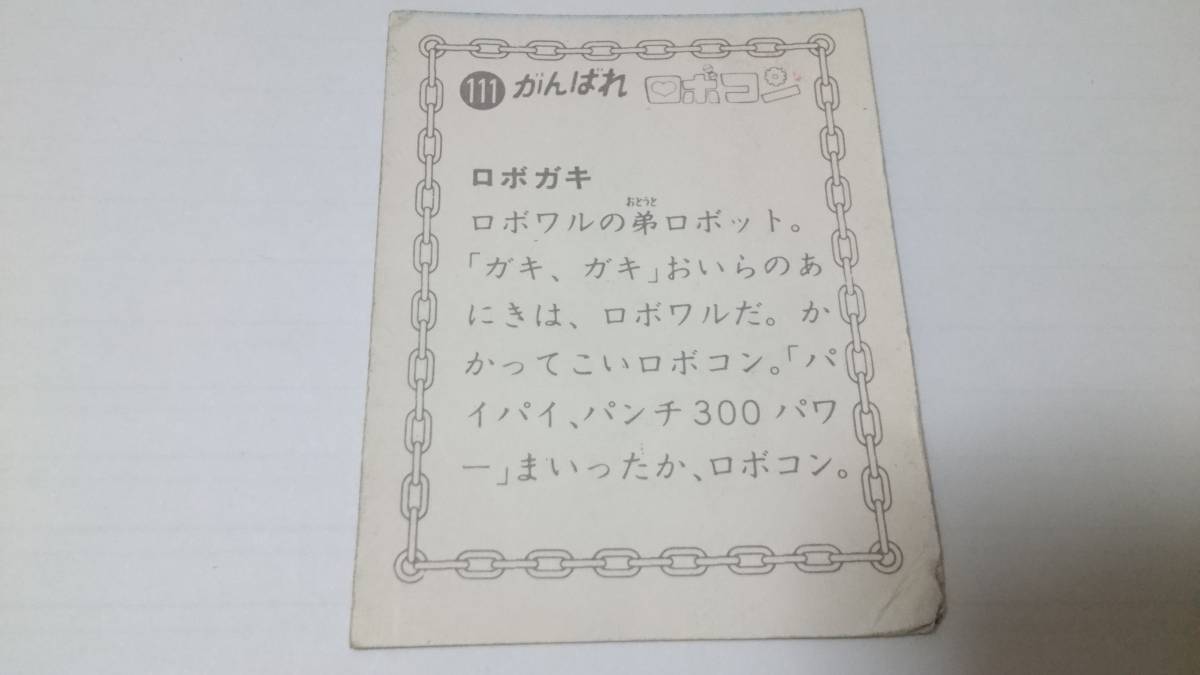 111 がんばれ ロボコン
ロボガキ
ロボワルの弟ロボット。
おとうと
「ガキ、ガキ」おいらのあ
にきは、ロボワルだ。か
かってこいロボコン。「パ
イパイ、パンチ300パワ
ー」まいったか、ロボコン。